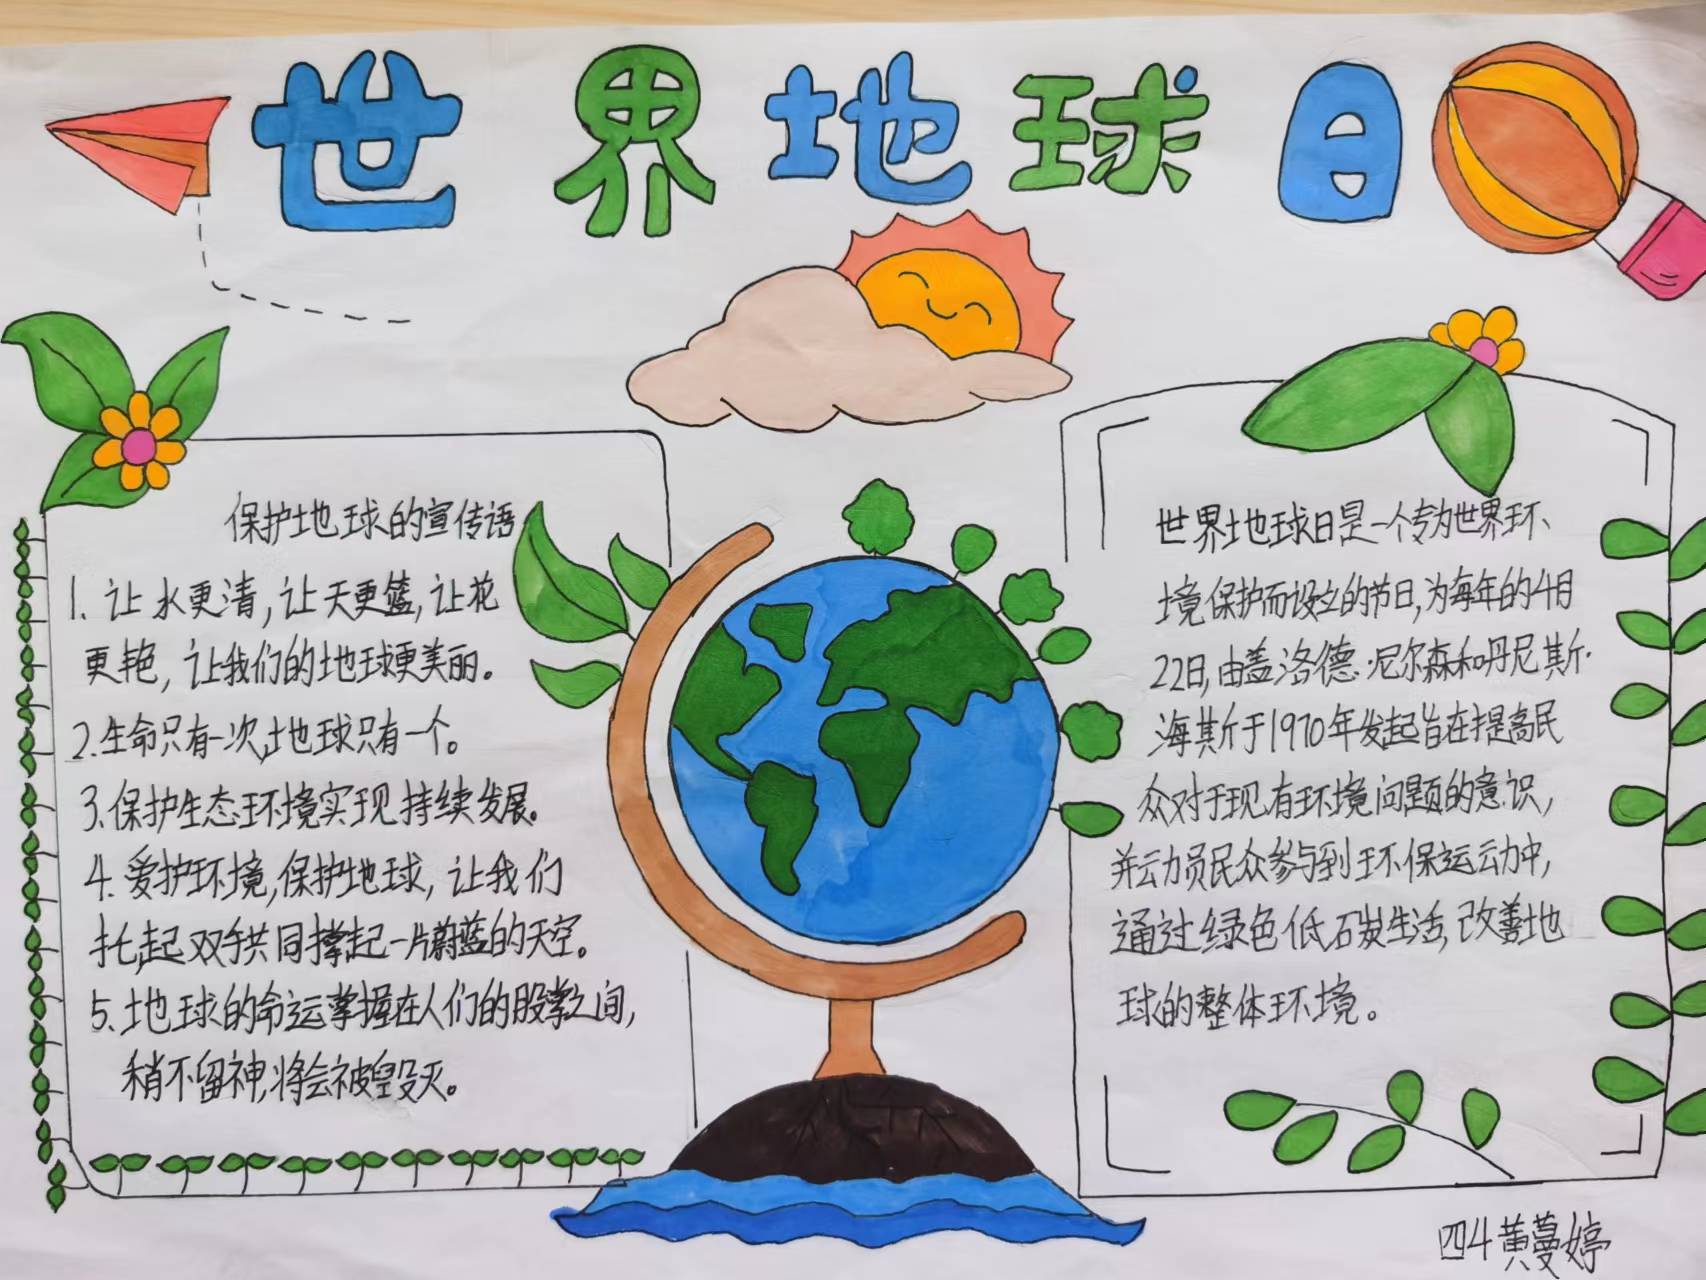 世界地球日
保护地球的宣传语
1. 让水更清,让天更篮,让花
更艳,让我们的地球更美丽。
2.生命只有一次,地球只有一个。
3.保护生态环境实现持续发展。
4.爱护环境,保护地球,让我们
托起双手共同撑起一片蔚蓝的天空。
5.地球的命运掌握在人们的股掌之间,
稍不留神,将会被毁灭。
世界地球日是一个专为世界环
境保护而设立的节日,为每年的4月
22日,由盖洛德·尼尔森和丹尼斯·
海斯于1970年发起旨在提高民
众对于现有环境问题的意识,
并动员民众参与到环保运动中,
通过绿色低碳生活,改善地
球的整体环境。
四4黄蔓婷